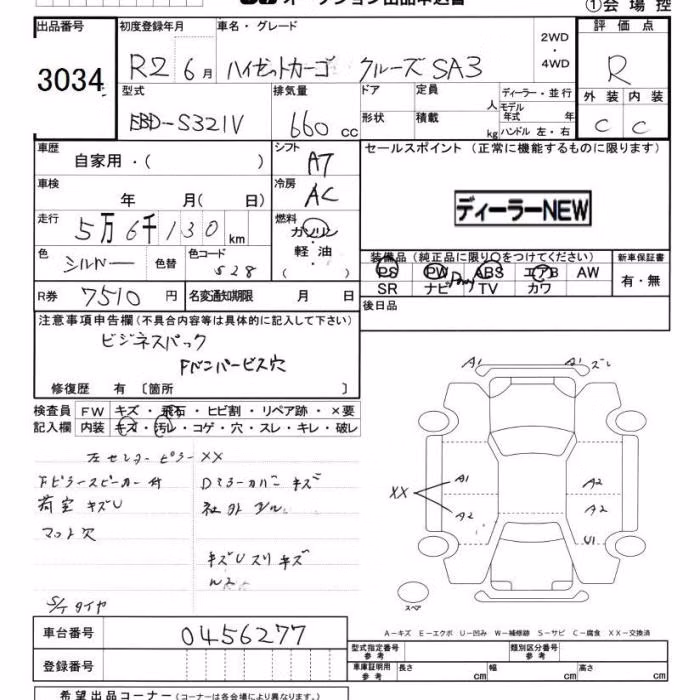 ①会 場 控
出品番号
3034
初度登録年月
R2 6月
車名・グレード
ハイゼットカーゴ クルーズ SA3
2WD
・
4WD
評 価 点
R
外 装 内 装
C C
型式
EBD-S321V
排気量
660 cc
ドア
形状
定員
人
積載
kg
ディーラー・並行
モデル
年式 年
ハンドル 左・右
車歴
自家用・( )
シフト
AT
セールスポイント (正常に機能するものに限ります)
車検
年 月( 日)
冷房
AC
ディーラーNEW
走行
5万6千130 km
燃料
ガソリン
軽 油
( )
色
シルバー
色替
色コード
S28
装備品(純正品に限り○をつけてください)
PS PW ABS エアB AW
SR ナビ TV カワ
新車保証書
有・無
R券 7510 円
名変通知期限 月 日
後日品
注意事項申告欄(不具合内容等は具体的に記入して下さい)
ビジネスパック
Fバンパービス穴
修復歴 有 〔箇所 〕
検査員 FW キズ・飛石・ヒビ割・リペア跡・×要
記入欄 内装 キズ・汚レ・コゲ・穴・スレ・キレ・破レ
左センターピラーXX
Fピラースピーカー付 Dミラーカバーキズ
荷室キズU 社外
マット穴
キズUスリキズ
S/Tタイヤ
A1 A1 ズレ
XX A1 A2
A2 A2
U1
スペア
A-キズ E-エクボ U-凹み W-補修跡 S-サビ C-腐食 XX-交換済
車台番号 0456277
登録番号
型式指定番号
参 考
類別区分番号
参 考
車庫証明用
参 考
長さ cm 幅 cm 高さ cm
希望出品コーナー(コーナーは各会場により異なります。)